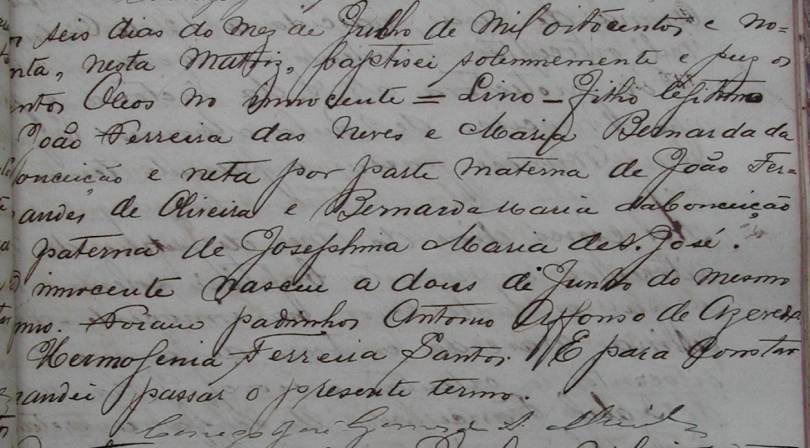 seis dias do Mez de Julho de Mil oitocentos e no=
nta, nesta Matriz, baptisei solennemente e puz os
ntos Oleos no innocente = Lino - Filho legitimo
João Ferreira das Neves e Maria Bernarda da
onceição e neta por parte materna de João Fer=
andes de Oliveira e Bernarda Maria da Conceição
paterna de Josephina Maria de S. José.
innocente nasceu a dous de Junho do mesmo
nno. Foram padrinhos Antonio Affonso de Azeredo
Hermogenia Ferreira Santos. E para constar
andei passar o presente termo.
Conego José